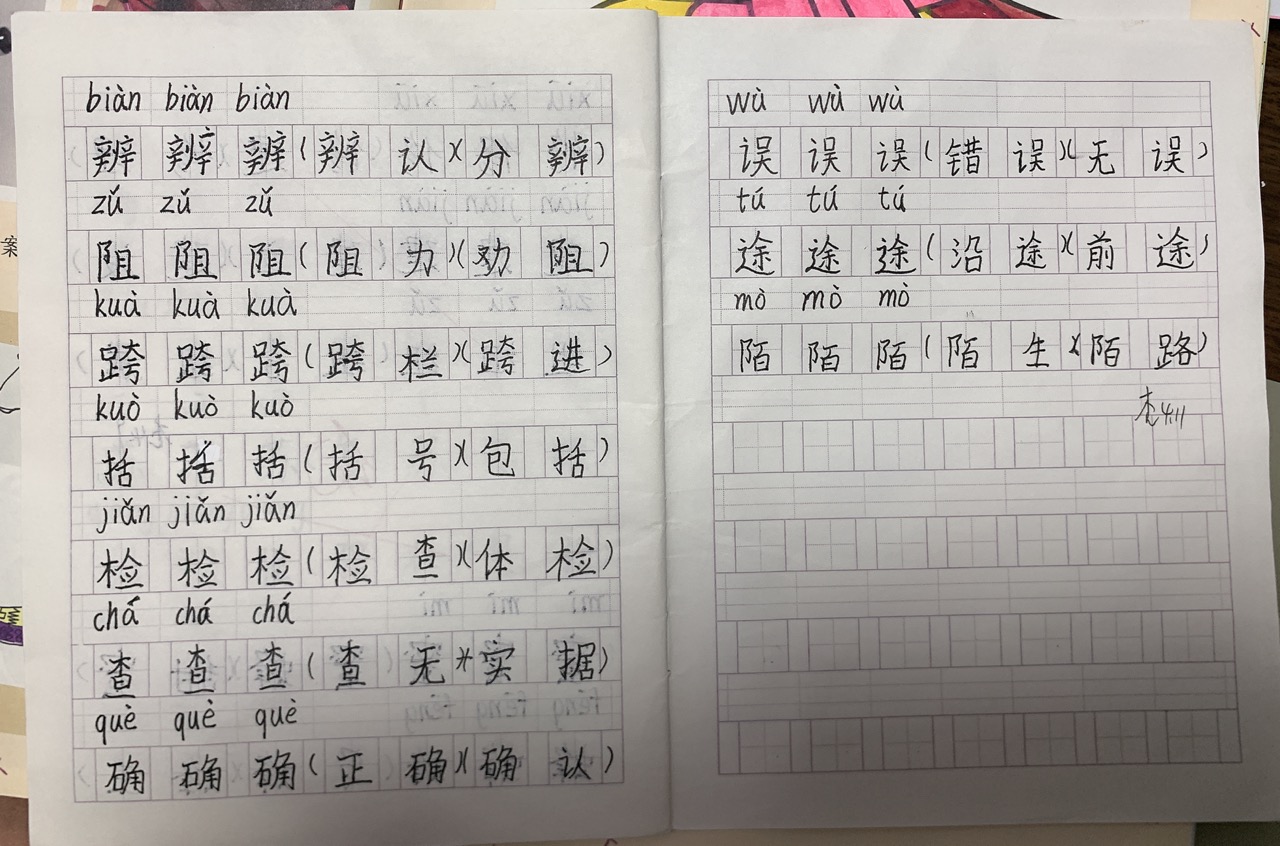 biàn biàn biàn
辨 辨 辨 (辨 认)(分 辨)
zǔ zǔ zǔ
阻 阻 阻 (阻 力)(劝 阻)
kuà kuà kuà
跨 跨 跨 (跨 栏)(跨 进)
kuò kuò kuò
括 括 括 (括 号)(包 括)
jiǎn jiǎn jiǎn
检 检 检 (检 查)(体 检)
chá chá chá
查 查 查 (查 无 实 据)
què què què
确 确 确 (正 确)(确 认)
wù wù wù
误 误 误 (错 误)(无 误)
tú tú tú
途 途 途 (沿 途)(前 途)
mò mò mò
陌 陌 陌 (陌 生)(陌 路)
4.11
案